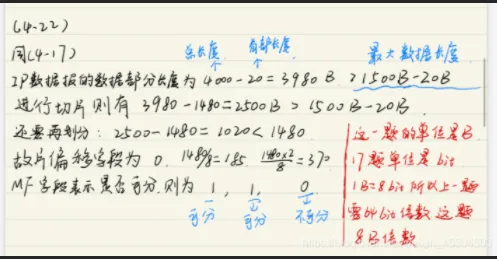 (4-22)
同(4-17)
总长度 首部长度 最大数据长度
IP数据报的数据部分长度为 4000-20=3980B >1500B-20B
进行切片则有 3980-1480=2500B > 1500B-20B
还要再划分: 2500-1480=1020<1480
故片偏移字段为 0, 1480/8=185, 1480×2/8=370
MF字段表示是否可分,则为 1, 1, 0
可分 可分 不可分
这一题的单位是B
17题单位是bit
1B=8bit 所以上一题
需64bit倍数 这题
8B倍数